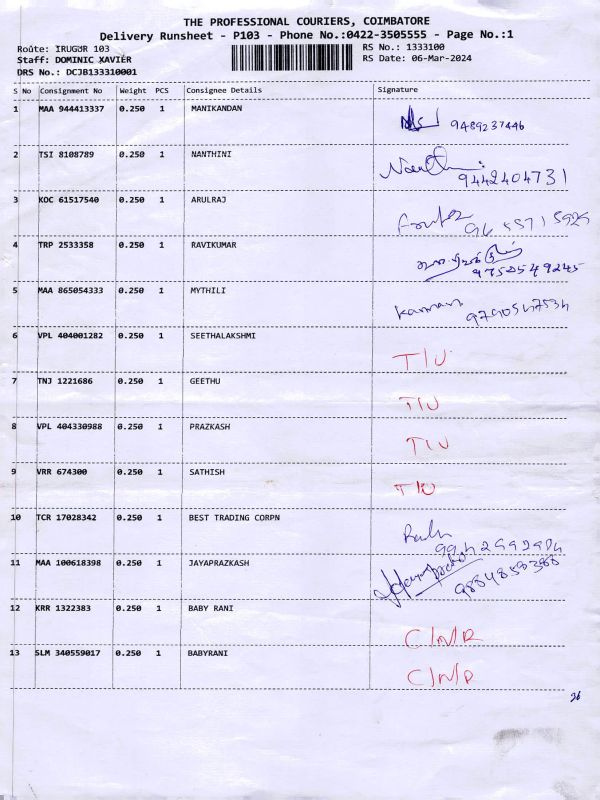 THE PROFESSIONAL COURIERS, COIMBATORE
Delivery Runsheet - P103 - Phone No.:0422-3505555 - Page No.:1
Route: IRUGUR 103 RS No.: 1333100
Staff: DOMINIC XAVIER RS Date: 06-Mar-2024
DRS No.: DCJB133310001
S No Consignment No Weight PCS Consignee Details Signature
1 MAA 944413337 0.250 1 MANIKANDAN
9489237446
2 TSI 8108789 0.250 1 NANTHINI
9442404731
3 KOC 61517540 0.250 1 ARULRAJ
4 TRP 2533358 0.250 1 RAVIKUMAR
9750549245
5 MAA 865054333 0.250 1 MYTHILI
6 VPL 404001282 0.250 1 SEETHALAKSHMI
T/U
7 TNJ 1221686 0.250 1 GEETHU
T/U
8 VPL 404330988 0.250 1 PRAZKASH
T/U
9 VRR 674300 0.250 1 SATHISH
T/U
10 TCR 17028342 0.250 1 BEST TRADING CORPN
11 MAA 100618398 0.250 1 JAYAPRAZKASH
12 KRR 1322383 0.250 1 BABY RANI
C/N/R
13 SLM 340559017 0.250 1 BABYRANI
C/N/R